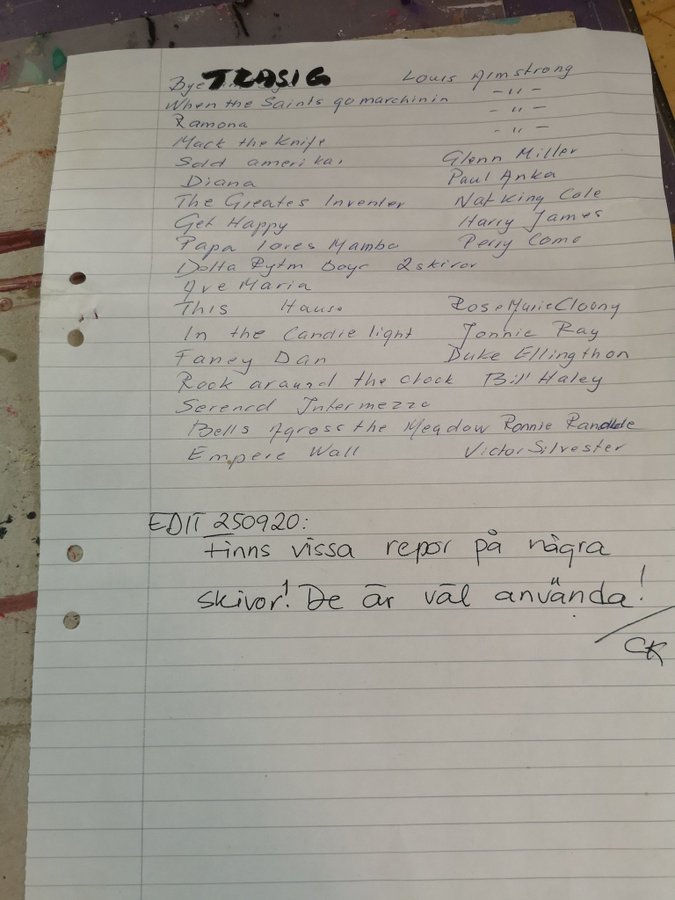 Bye TRASIG Louis Armstrong
When the Saints go marchinin — " —
Ramona — " —
Mack the Knife — " —
Sold amerikai Glenn Miller
Diana Paul Anka
The Greates Inventer Nat King Cole
Get Happy Harry James
Papa loves Mambo Perry Como
Dolta Rytm Boys 2 skivor
Ave Maria
This Hause Rose Marie Cloony
In the Candle light Jonnie Ray
Faney Dan Duke Ellingthon
Rock around the clock Bill Haley
Serenad Intermezzo
Bells Agross the Meadow Ronnie Randlle
Empere Wall Victor Silvester
EDIT 250920:
Finns vissa repor på några
skivor! De är väl använda!
/CK